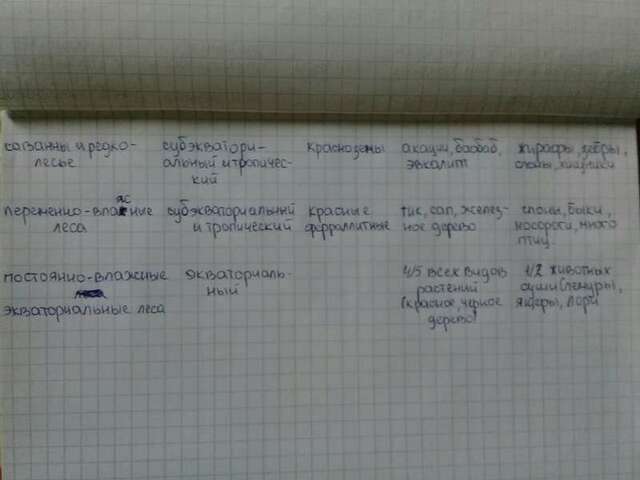 саванны и редко- субэкватори- красноземы акации, баобаб, жирафы, зебры,
лесье альный и тропичес- эвкалит слоны, хищники
кий
переменно-влажные субэкваториальный красные тик, сал, желез- слоны, быки,
леса и тропический ферраллитные ное дерево носороги, много
птиц.
постоянно-влажные экваториаль- 4/5 всех видов 1/2 животных
ный растений суши (лемуры),
экваториальные леса (красное, черное ящеры, лори
дерево)